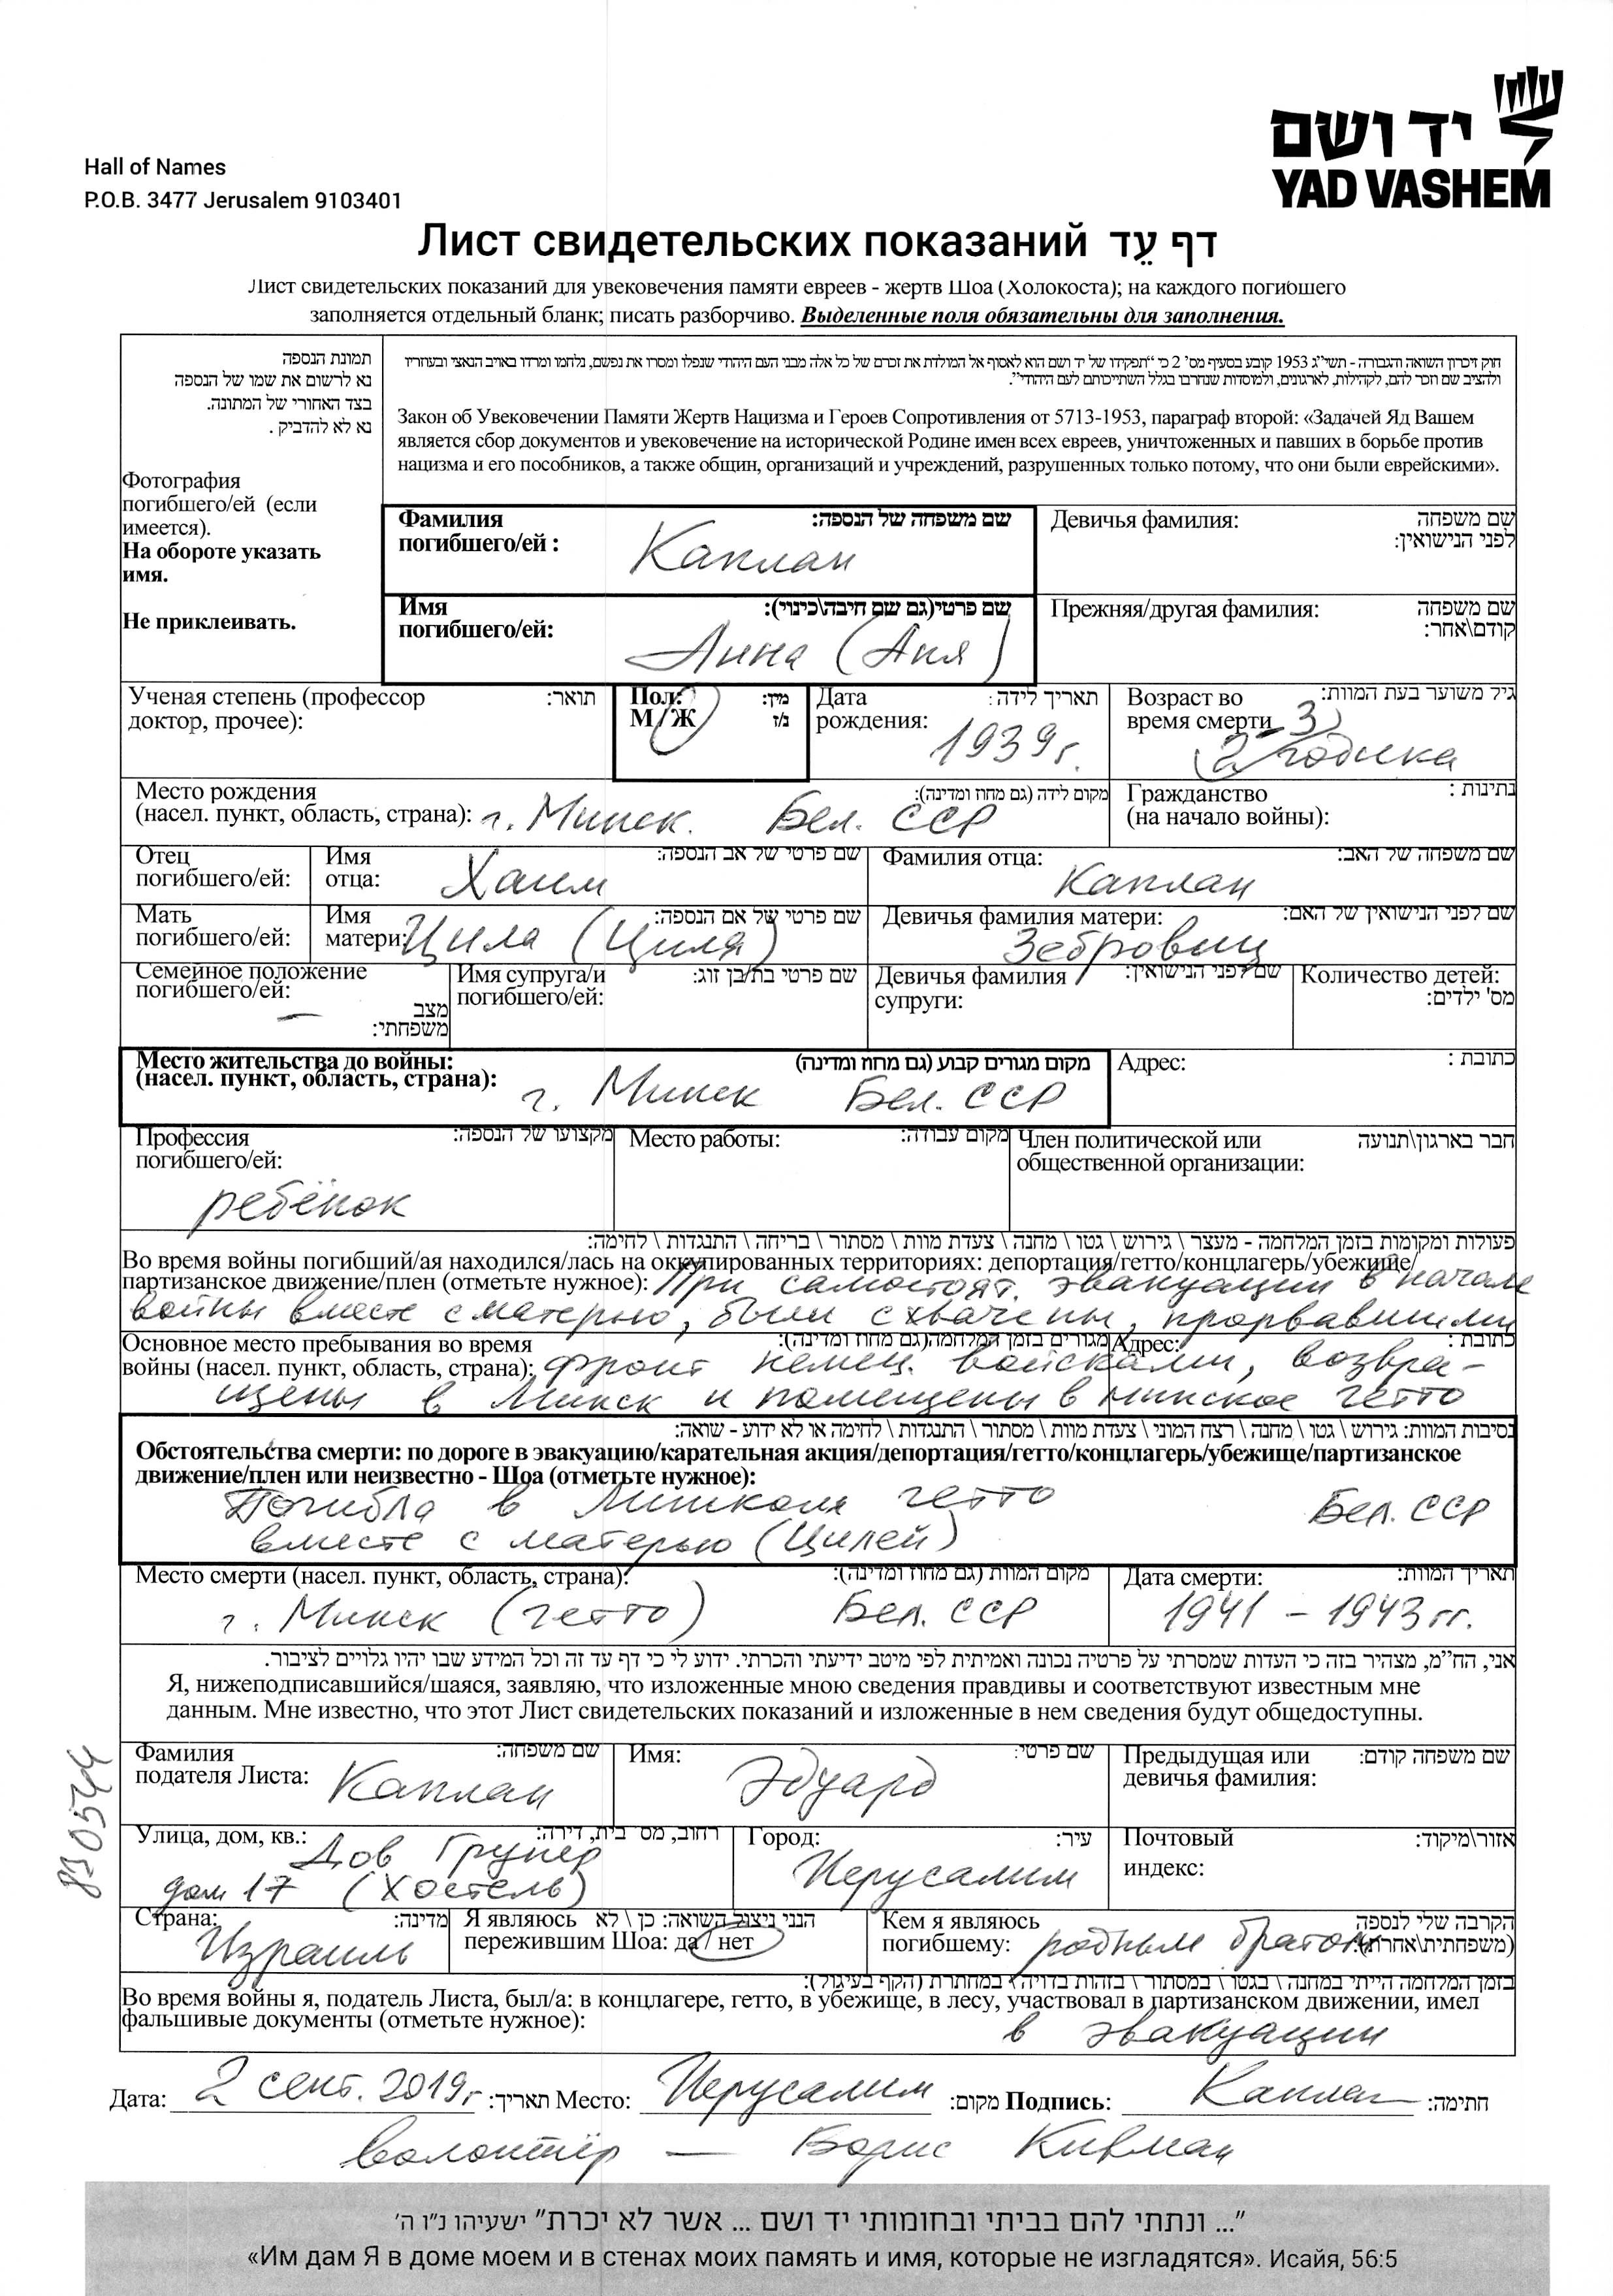 יד ושם
YAD VASHEM
Hall of Names
P.O.B. 3477 Jerusalem 9103401
Лист свидетельских показаний דף עֵד
Лист свидетельских показаний для увековечения памяти евреев - жертв Шоа (Холокоста); на каждого погибшего
заполняется отдельный бланк; писать разборчиво. Выделенные поля обязательны для заполнения.
תמונת הנספה
נא לרשום את שמו של הנספה
בצד האחורי של המתונה.
נא לא להדביק .
Фотография
погибшего/ей (если
имеется).
На обороте указать
имя.
Не приклеивать.
חוק זיכרון השואה והגבורה - תשי"ג 1953 קובע בסעיף מס' 2 כי "תפקידו של יד ושם הוא לאסוף אל המולדת את זכרם של כל אלה מבני העם היהודי שנפלו ומסרו את נפשם, נלחמו ומרדו באויב הנאצי ובעוזריו
ולהציב שם וזכר להם, לקהילות, לארגונים, ולמוסדות שנחרבו בגלל השתייכותם לעם היהודי".
Закон об Увековечении Памяти Жертв Нацизма и Героев Сопротивления от 5713-1953, параграф второй: «Задачей Яд Вашем
является сбор документов и увековечение на исторической Родине имен всех евреев, уничтоженных и павших в борьбе против
нацизма и его пособников, а также общин, организаций и учреждений, разрушенных только потому, что они были еврейскими».
Фамилия שם משפחה של הנספה:
погибшего/ей : Каплан
Девичья фамилия: שם משפחה
לפני הנישואין:
Имя שם פרטי(גם שם חיבה\כינוי):
погибшего/ей: Анна (Аня)
Прежняя/другая фамилия: שם משפחה
קודם\אחר:
Ученая степень (профессор תואר:
доктор, прочее):
Пол: מין:
М/Ж נ/ז
Дата תאריך לידה :
рождения: 1939г.
Возраст во גיל משוער בעת המוות:
время смерти 2-3
2 годика
Место рождения מקום לידה (גם מחוז ומדינה):
(насел. пункт, область, страна): г. Минск. Бел. ССР
Гражданство נתינות :
(на начало войны):
Отец
погибшего/ей:
Имя שם פרטי של אב הנספה:
отца: Хаим
Фамилия отца: שם משפחה של האב:
Каплан
Мать
погибшего/ей:
Имя שם פרטי של אם הנספה:
матери: Цила (Циля)
Девичья фамилия матери: שם לפני הנישואין של האם:
Зебровиц
Семейное положение
погибшего/ей: —
מצב
משפחתי:
Имя супруга/и שם פרטי בת/בן זוג:
погибшего/ей:
Девичья фамилия שם לפני הנישואין:
супруги:
Количество детей:
מס' ילדים:
Место жительства до войны: מקום מגורים קבוע (גם מחוז ומדינה)
(насел. пункт, область, страна): г. Минск Бел. ССР
Адрес: כתובת :
Профессия מקצועו של הנספה:
погибшего/ей:
ребёнок
Место работы: מקום עבודה:
Член политической или חבר בארגון\תנועה
общественной организации:
פעולות ומקומות בזמן המלחמה - מעצר \ גירוש \ גטו \ מחנה \ צעדת מוות \ מסתור \ בריחה \ התנגדות \ לחימה:
Во время войны погибший/ая находился/лась на оккупированных территориях: депортация/гетто/концлагерь/убежище/
партизанское движение/плен (отметьте нужное): При самостоят. эвакуации в начале
войны вместе с матерью, были схвачены, прорвавшими
Основное место пребывания во время מגורים בזמן המלחמה(גם מחוז ומדינה): Адрес: כתובת :
войны (насел. пункт, область, страна): фронт немец. войсками, возвра-
щены в Минск и помещены в минское гетто
נסיבות המוות: גירוש \ גטו \ מחנה \ רצח המוני \ צעדת מוות \ מסתור \ התנגדות \ לחימה או לא ידוע - שואה:
Обстоятельства смерти: по дороге в эвакуацию/карательная акция/депортация/гетто/концлагерь/убежище/партизанское
движение/плен или неизвестно - Шоа (отметьте нужное):
Погибла в Минском гетто Бел. ССР
вместе с матерью (Цилей)
Место смерти (насел. пункт, область, страна): מקום המוות (גם מחוז ומדינה):
г. Минск (гетто) Бел. ССР
Дата смерти: תאריך המוות:
1941 - 1943 гг.
אני, הח"מ, מצהיר בזה כי העדות שמסרתי על פרטיה נכונה ואמיתית לפי מיטב ידיעתי והכרתי. ידוע לי כי דף עד זה וכל המידע שבו יהיו גלויים לציבור.
Я, нижеподписавшийся/шаяся, заявляю, что изложенные мною сведения правдивы и соответствуют известным мне
данным. Мне известно, что этот Лист свидетельских показаний и изложенные в нем сведения будут общедоступны.
Фамилия שם משפחה:
подателя Листа: Каплан
Имя: שם פרטי:
Эдуард
Предыдущая или שם משפחה קודם:
девичья фамилия:
Улица, дом, кв.: רחוב, מס בית, דירה:
Дов Грунер
дом 17 (Хостель)
Город: עיר:
Иерусалим
Почтовый אזור\מיקוד:
индекс:
Страна: מדינה:
Израиль
Я являюсь הנני ניצול השואה: כן \ לא
пережившим Шоа: да / нет
Кем я являюсь הקרבה שלי לנספה
погибшему: родным братом (משפחתית\אחרת):
בזמן המלחמה הייתי במחנה \ בגטו \ במסתור \ בזהות בדויה \ במחתרת (הקף בעיגול):
Во время войны я, податель Листа, был/а: в концлагере, гетто, в убежище, в лесу, участвовал в партизанском движении, имел
фальшивые документы (отметьте нужное): в эвакуации
Дата: 2 сент. 2019г תאריך: Место: Иерусалим מקום: Подпись: Каплан חתימה:
волонтёр — Борис Кивман
830544
"... ונתתי להם בביתי ובחומותי יד ושם ... אשר לא יכרת" ישעיהו נ"ו ה'
«Им дам Я в доме моем и в стенах моих память и имя, которые не изгладятся». Исайя, 56:5